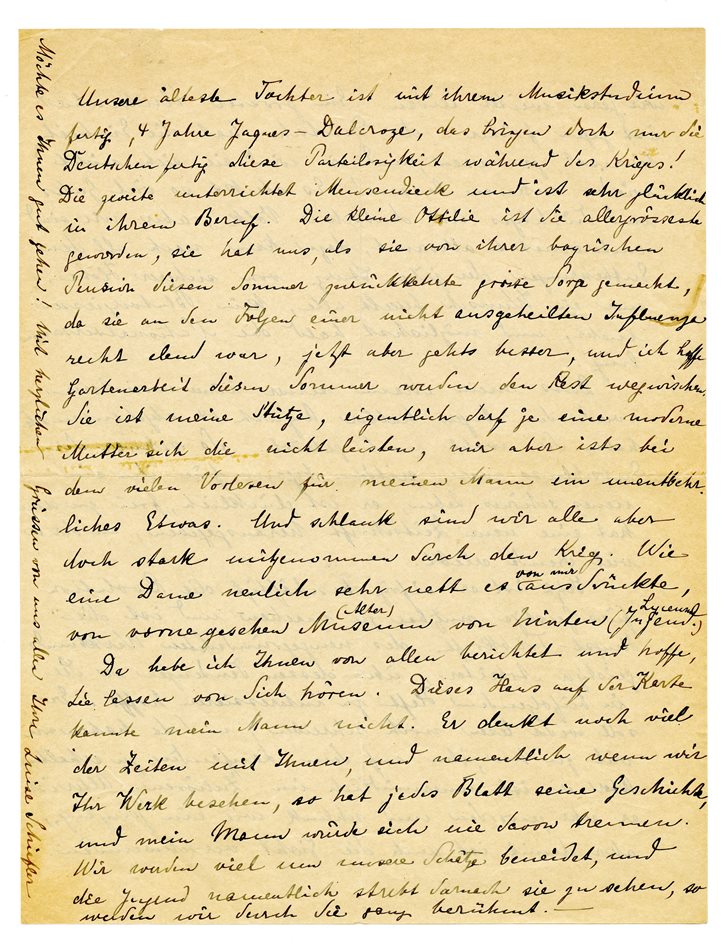 Unsere älteste Tochter ist mit ihrem Musikstudium
fertig, 4 Jahre Jaques-Dalcroze, das bringen doch nur die
Deutschen fertig diese Parteilosigkeit während des Kriegs!
Die zweite unterrichtet Mensendieck und ist sehr glücklich
in ihrem Beruf. Die kleine Ottilie ist die allergrösseste
geworden, sie hat uns, als sie von ihrer bayrischen
Pension diesen Sommer zurückkehrte grosse Sorge gemacht,
da sie an den Folgen einer nicht ausgeheilten Influenza
recht elend war, jetzt aber gehts besser, und ich hoffe
Gartenarbeit diesen Sommer werden den Rest wegwischen.
Sie ist meine Stütze, eigentlich darf je eine moderne
Mutter sich die nicht leisten, mir aber ists bei
dem vielen Vorlesen für meinen Mann ein unentbehr-
liches Etwas. Und schlank sind wir alle aber
doch stark mitgenommen durch den Krieg. Wie
eine Dame neulich sehr nett es von mir ausdrückte,
von vorne gesehen Museum (Alter) von hinten Lyceum (Jugend.)
Da habe ich Ihnen von allen berichtet und hoffe,
Sie lassen von Sich hören. Dieses Haus auf der Karte
kannte mein Mann nicht. Er denkt noch viel
der Zeiten mit Ihnen, und namentlich wenn wir
Ihr Werk besehen, so hat jedes Blatt seine Geschichte,
und mein Mann würde sich nie davon trennen.
Wir werden viel um unsere Schätze beneidet, und
die Jugend namentlich strebt darnach sie zu sehen, so
werden wir durch Sie ganz berühmt. —
Möchte es Ihnen gut gehen! Mit herzlichen Grüssen von uns allen Ihre Luise Schiefler